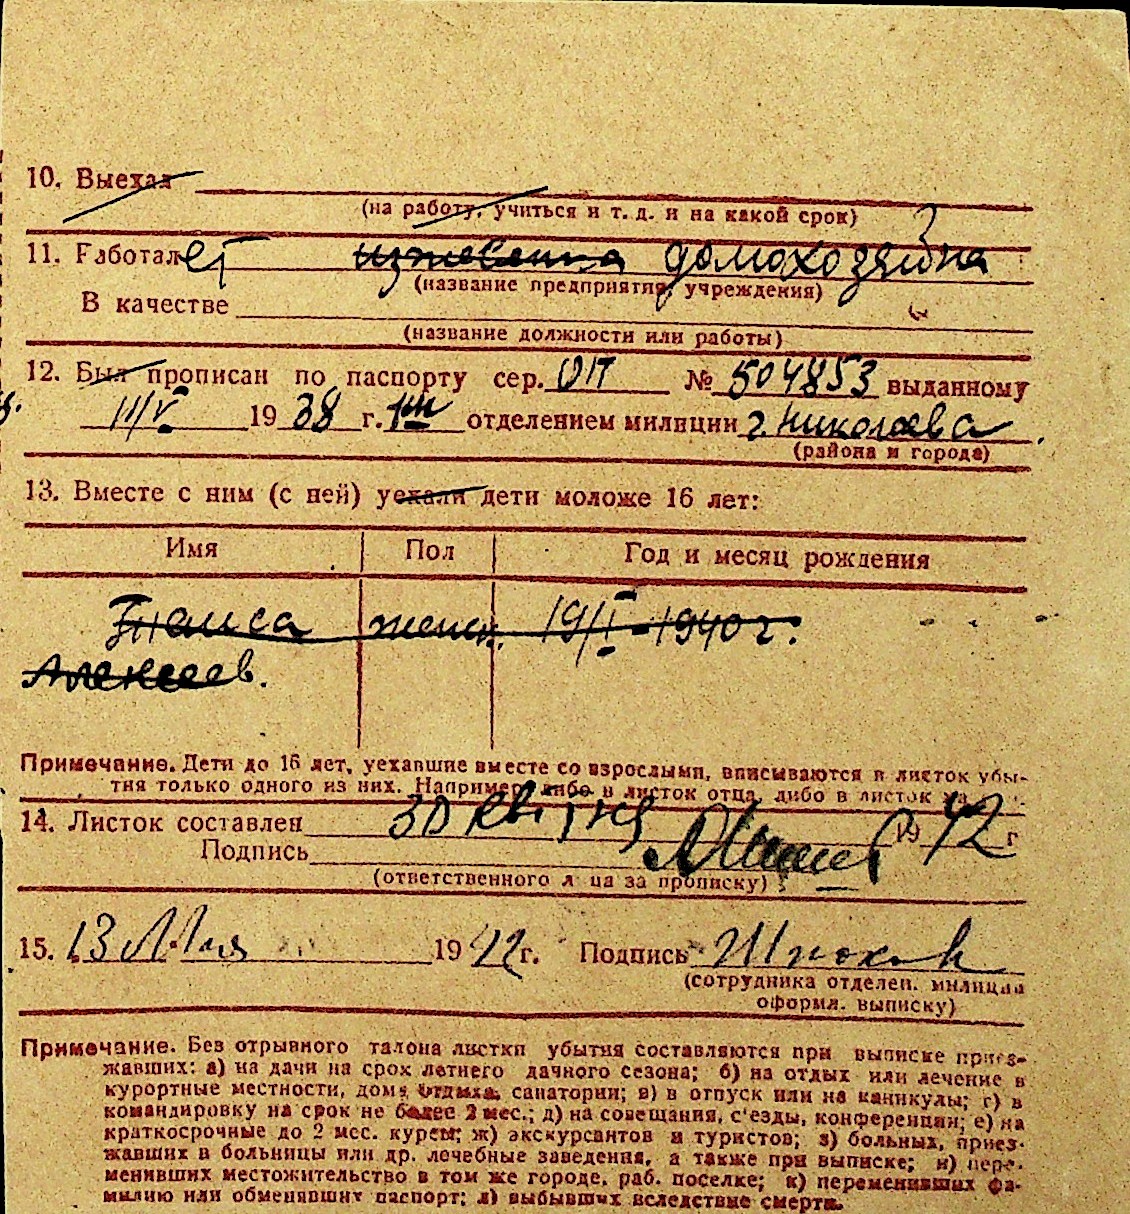 10. Выехал
(на работу, учиться и т. д. и на какой срок)
11. Работает иждивенка домохозяйка
(название предприятия, учреждения)
В качестве
(название должности или работы)
12. Был прописан по паспорту сер. № 504853 выданному
III/V 1938 г. отделением милиции г. Николаева
(района и города)
13. Вместе с ним (с ней) уехали дети моложе 16 лет:
Имя Пол Год и месяц рождения
женск. 19/I-1940 г.
Алексеев.
Примечание. Дети до 16 лет, уехавшие вместе со взрослыми, вписываются в листок убы-
тия только одного из них. Например либо в листок отца, либо в листок
14. Листок составлен 30 1942 г
Подпись
(ответственного лица за прописку)
15. 13 Мая 1942 г. Подпись
(сотрудника отделен. милиции
оформл. выписку)
Примечание. Без отрывного талона листки убытия составляются при выписке приез-
жавших: а) на дачи на срок летнего дачного сезона; б) на отдых или лечение в
курортные местности, дома отдыха, санатории; в) в отпуск или на каникулы; г) в
командировку на срок не более 2 мес.; д) на совещания, с'езды, конференции; е) на
краткосрочные до 2 мес. курсы; ж) экскурсантов и туристов; з) больных, приез-
жавших в больницы или др. лечебные заведения, а также при выписке; и) пере-
менивших местожительство в том же городе, раб. поселке; к) переменивших фа-
милию или обменявших паспорт; л) выбывших вследствие смерти.